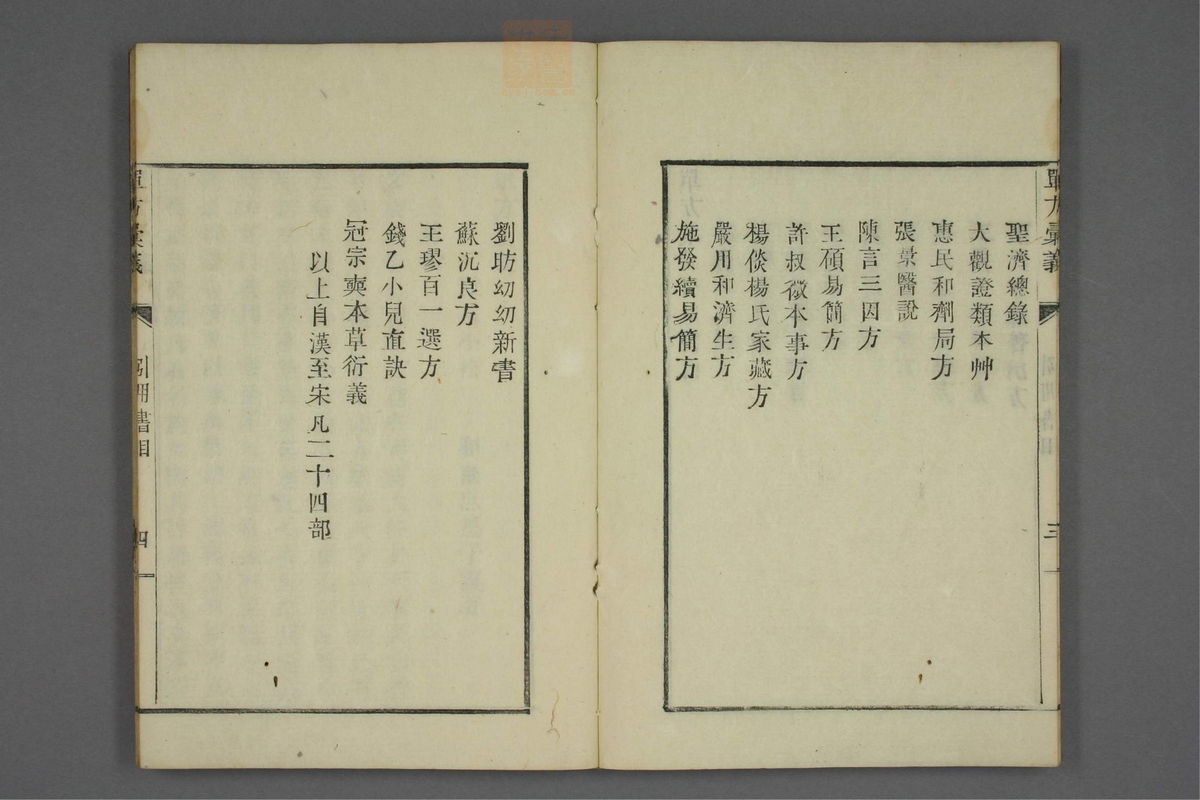 聖濟總錄
大觀證類本艸
惠民和劑局方
張杲醫說
陳言三因方
王碩易簡方
許叔微本事方
楊倓楊氏家藏方
嚴用和濟生方
施發續易簡方
單方彙義
三
劉昉幼幼新書
蘇沉良方
王璆百一選方
錢乙小兒直訣
冦宗奭本草衍義
以上自漢至宋凡二十四部
單方彙義
引用書目
四